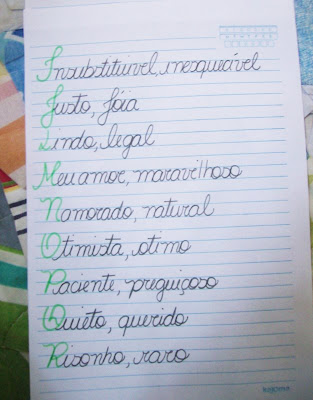 Insubstituivel, inesquecível
Justo, jóia
Lindo, legal
Meu amor, maravilhoso
Namorado, natural
Otimista, otimo
Paciente, preguiçoso
Quieto, querido
Risonho, raro